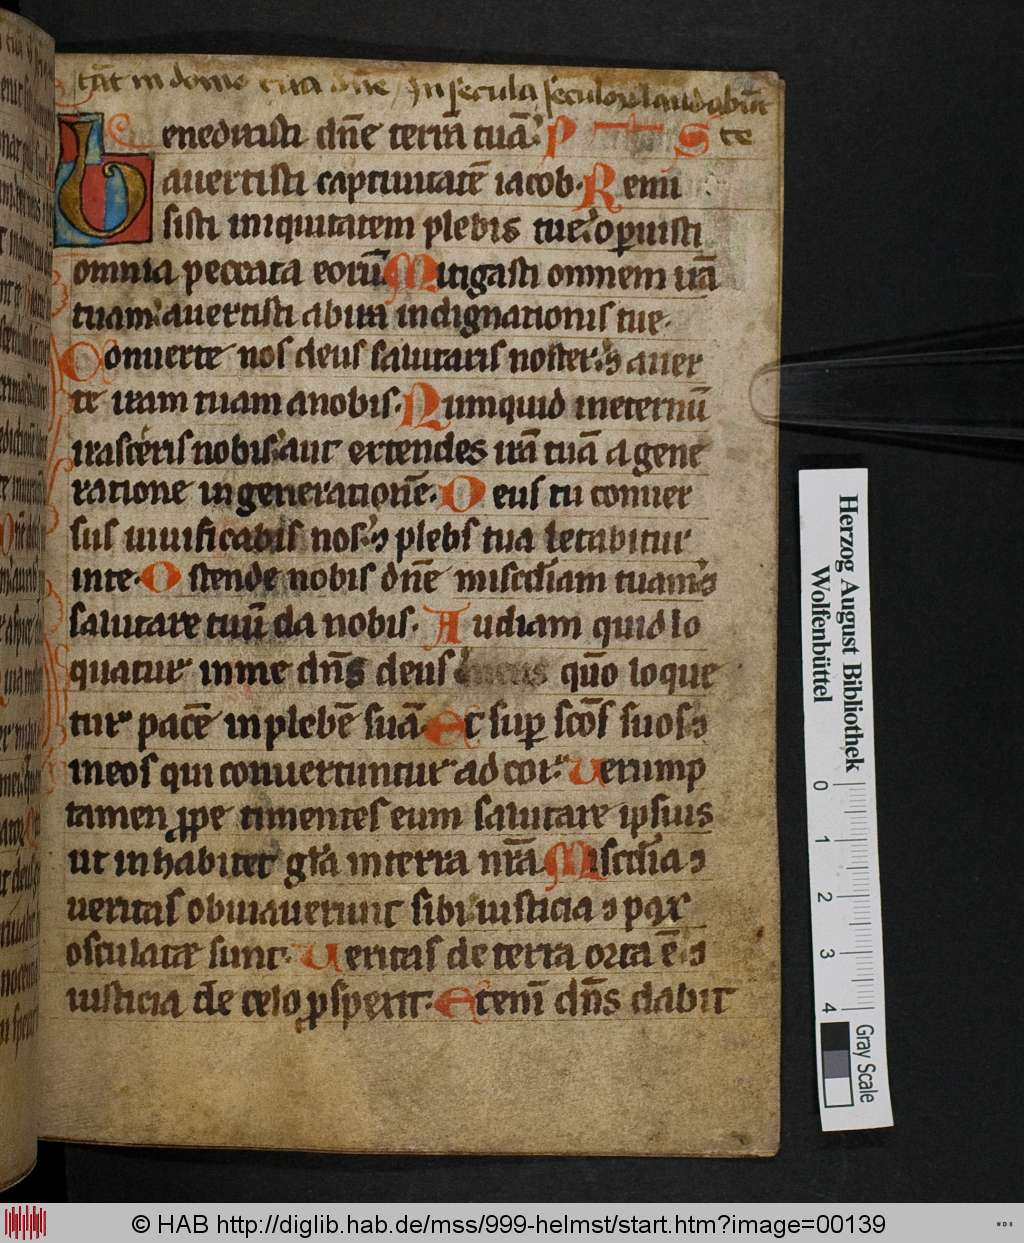 tāt in domo tua dn̄e in secula seculoꝝ laudabūt
te
Benedixisti dn̄e terrā tuā. P S
auertisti captiuitatē iacob. Remi
sisti iniquitatem plebis tue. opuisti
omnia peccata eorū. Mitigasti omnem irā
tuam. auertisti ab ira indignationis tue.
Conuerte nos deus salutaris noster. ⁊ auer
te iram tuam a nobis. Numquid in eternū
irasceris nobis. aut extendes irā tuā a gene
ratione in generationē. Deus tu conuer
sus uiuificabis nos. ⁊ plebs tua letabitur
in te. Ostende nobis dn̄e misc̄diam tuam. ⁊
salutare tuū da nobis. Audiam quid lo
quatur in me dn̄s deus qūo loque
tur pacē in plebē suā. Et suꝑ sc̄os suos. ⁊
in eos qui conuertuntur ad cor. Uerump
tamen ꝓpe timentes eum salutare ipsius
ut inhabitet gl̄a in terra nr̄a. Misc̄dia ⁊
ueritas obuiauerunt sibi. iusticia ⁊ pax
osculatae sunt. Ueritas de terra orta ē. ⁊
iusticia de celo ꝓspexit. Etenī dn̄s dabit
Herzog August Bibliothek
Wolfenbüttel
0 1 2 3 4
Gray Scale
© HAB http://diglib.hab.de/mss/999-helmst/start.htm?image=00139